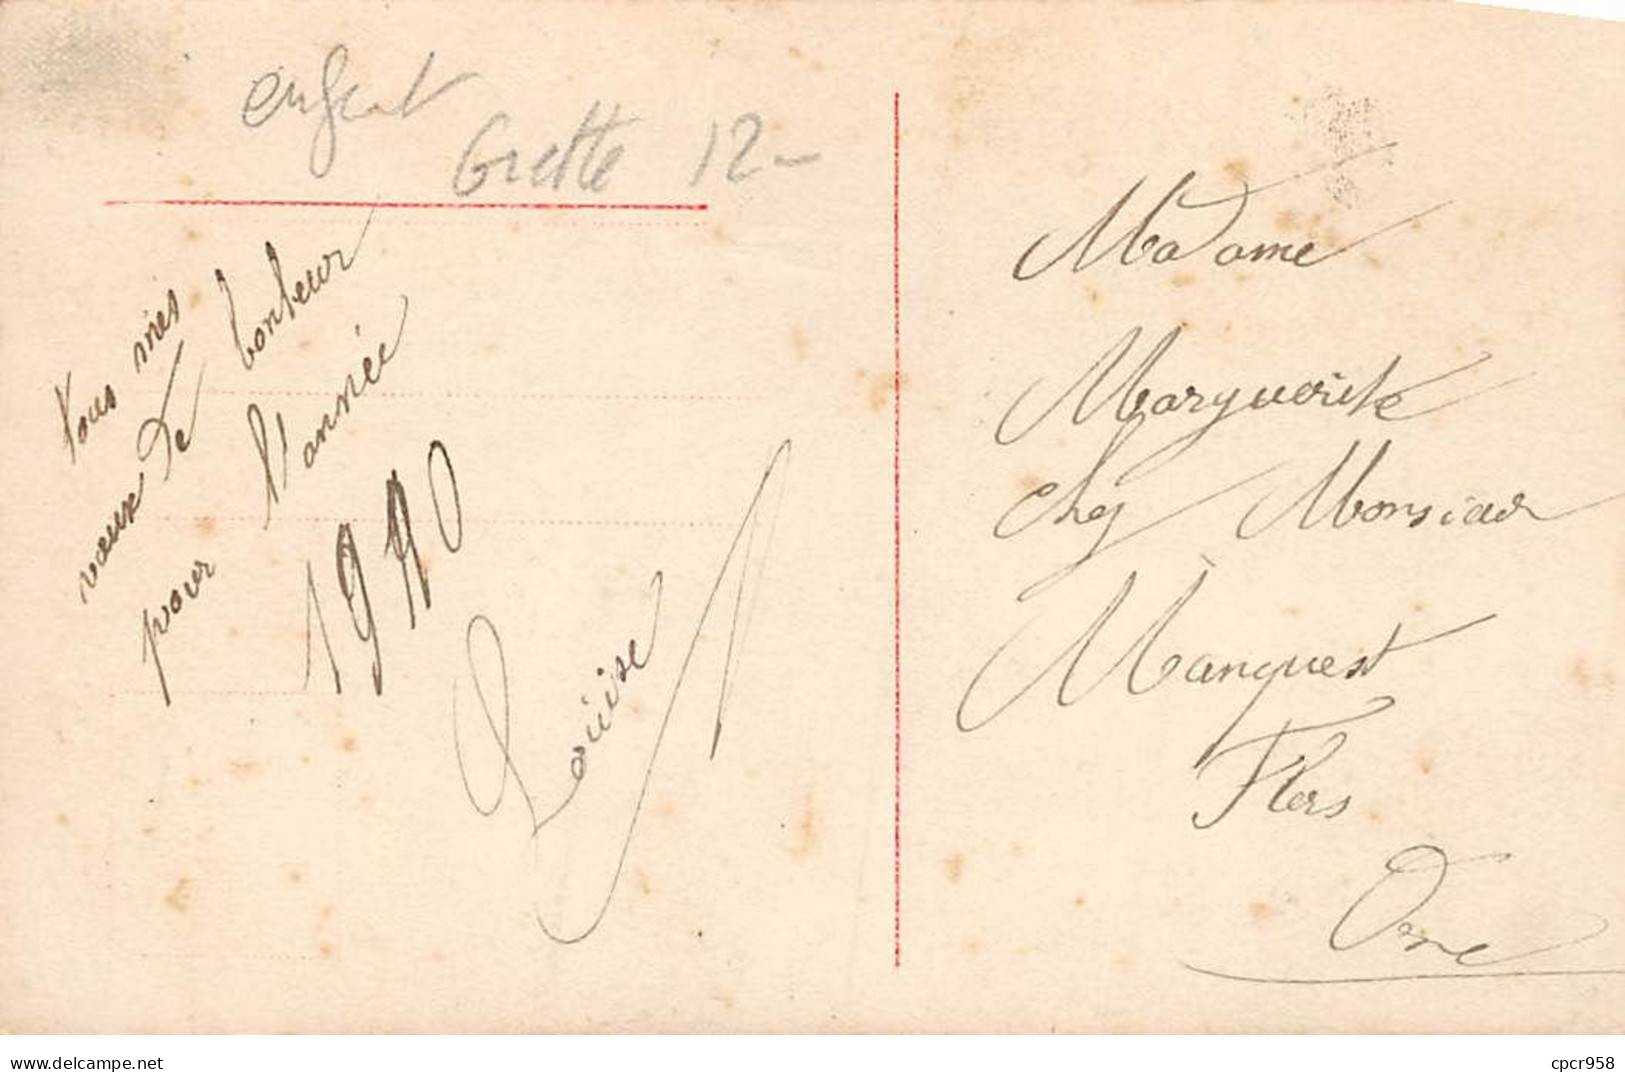 enfant
Grette 12-
Tous mes
vœux de bonheur
pour l'année
1910
Louise
Madame
Marguerite
chez Monsieur
Manquest
Flers
Orne
delcampe.net
cpcr958